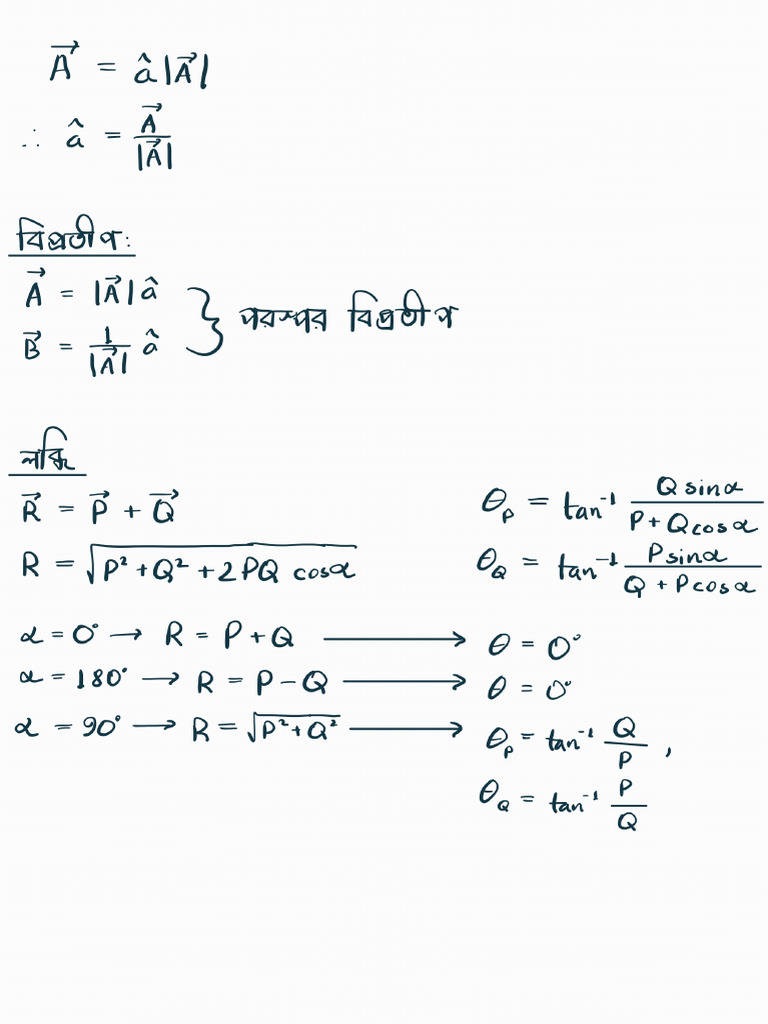 A⃗ = â|A⃗|
∴ â = A⃗/|A⃗|
বিপ্রতীপ:
A⃗ = |A⃗| â
B⃗ = 1/|A⃗| â } পরস্পর বিপ্রতীপ
লব্ধি
R⃗ = P⃗ + Q⃗
R = √(P² + Q² + 2PQ cosα)
θ_P = tan⁻¹ (Q sinα)/(P + Q cosα)
θ_Q = tan⁻¹ (P sinα)/(Q + P cosα)
α = 0° → R = P + Q → θ = 0°
α = 180° → R = P − Q → θ = 0°
α = 90° → R = √(P² + Q²) → θ_P = tan⁻¹ Q/P ,
θ_Q = tan⁻¹ P/Q